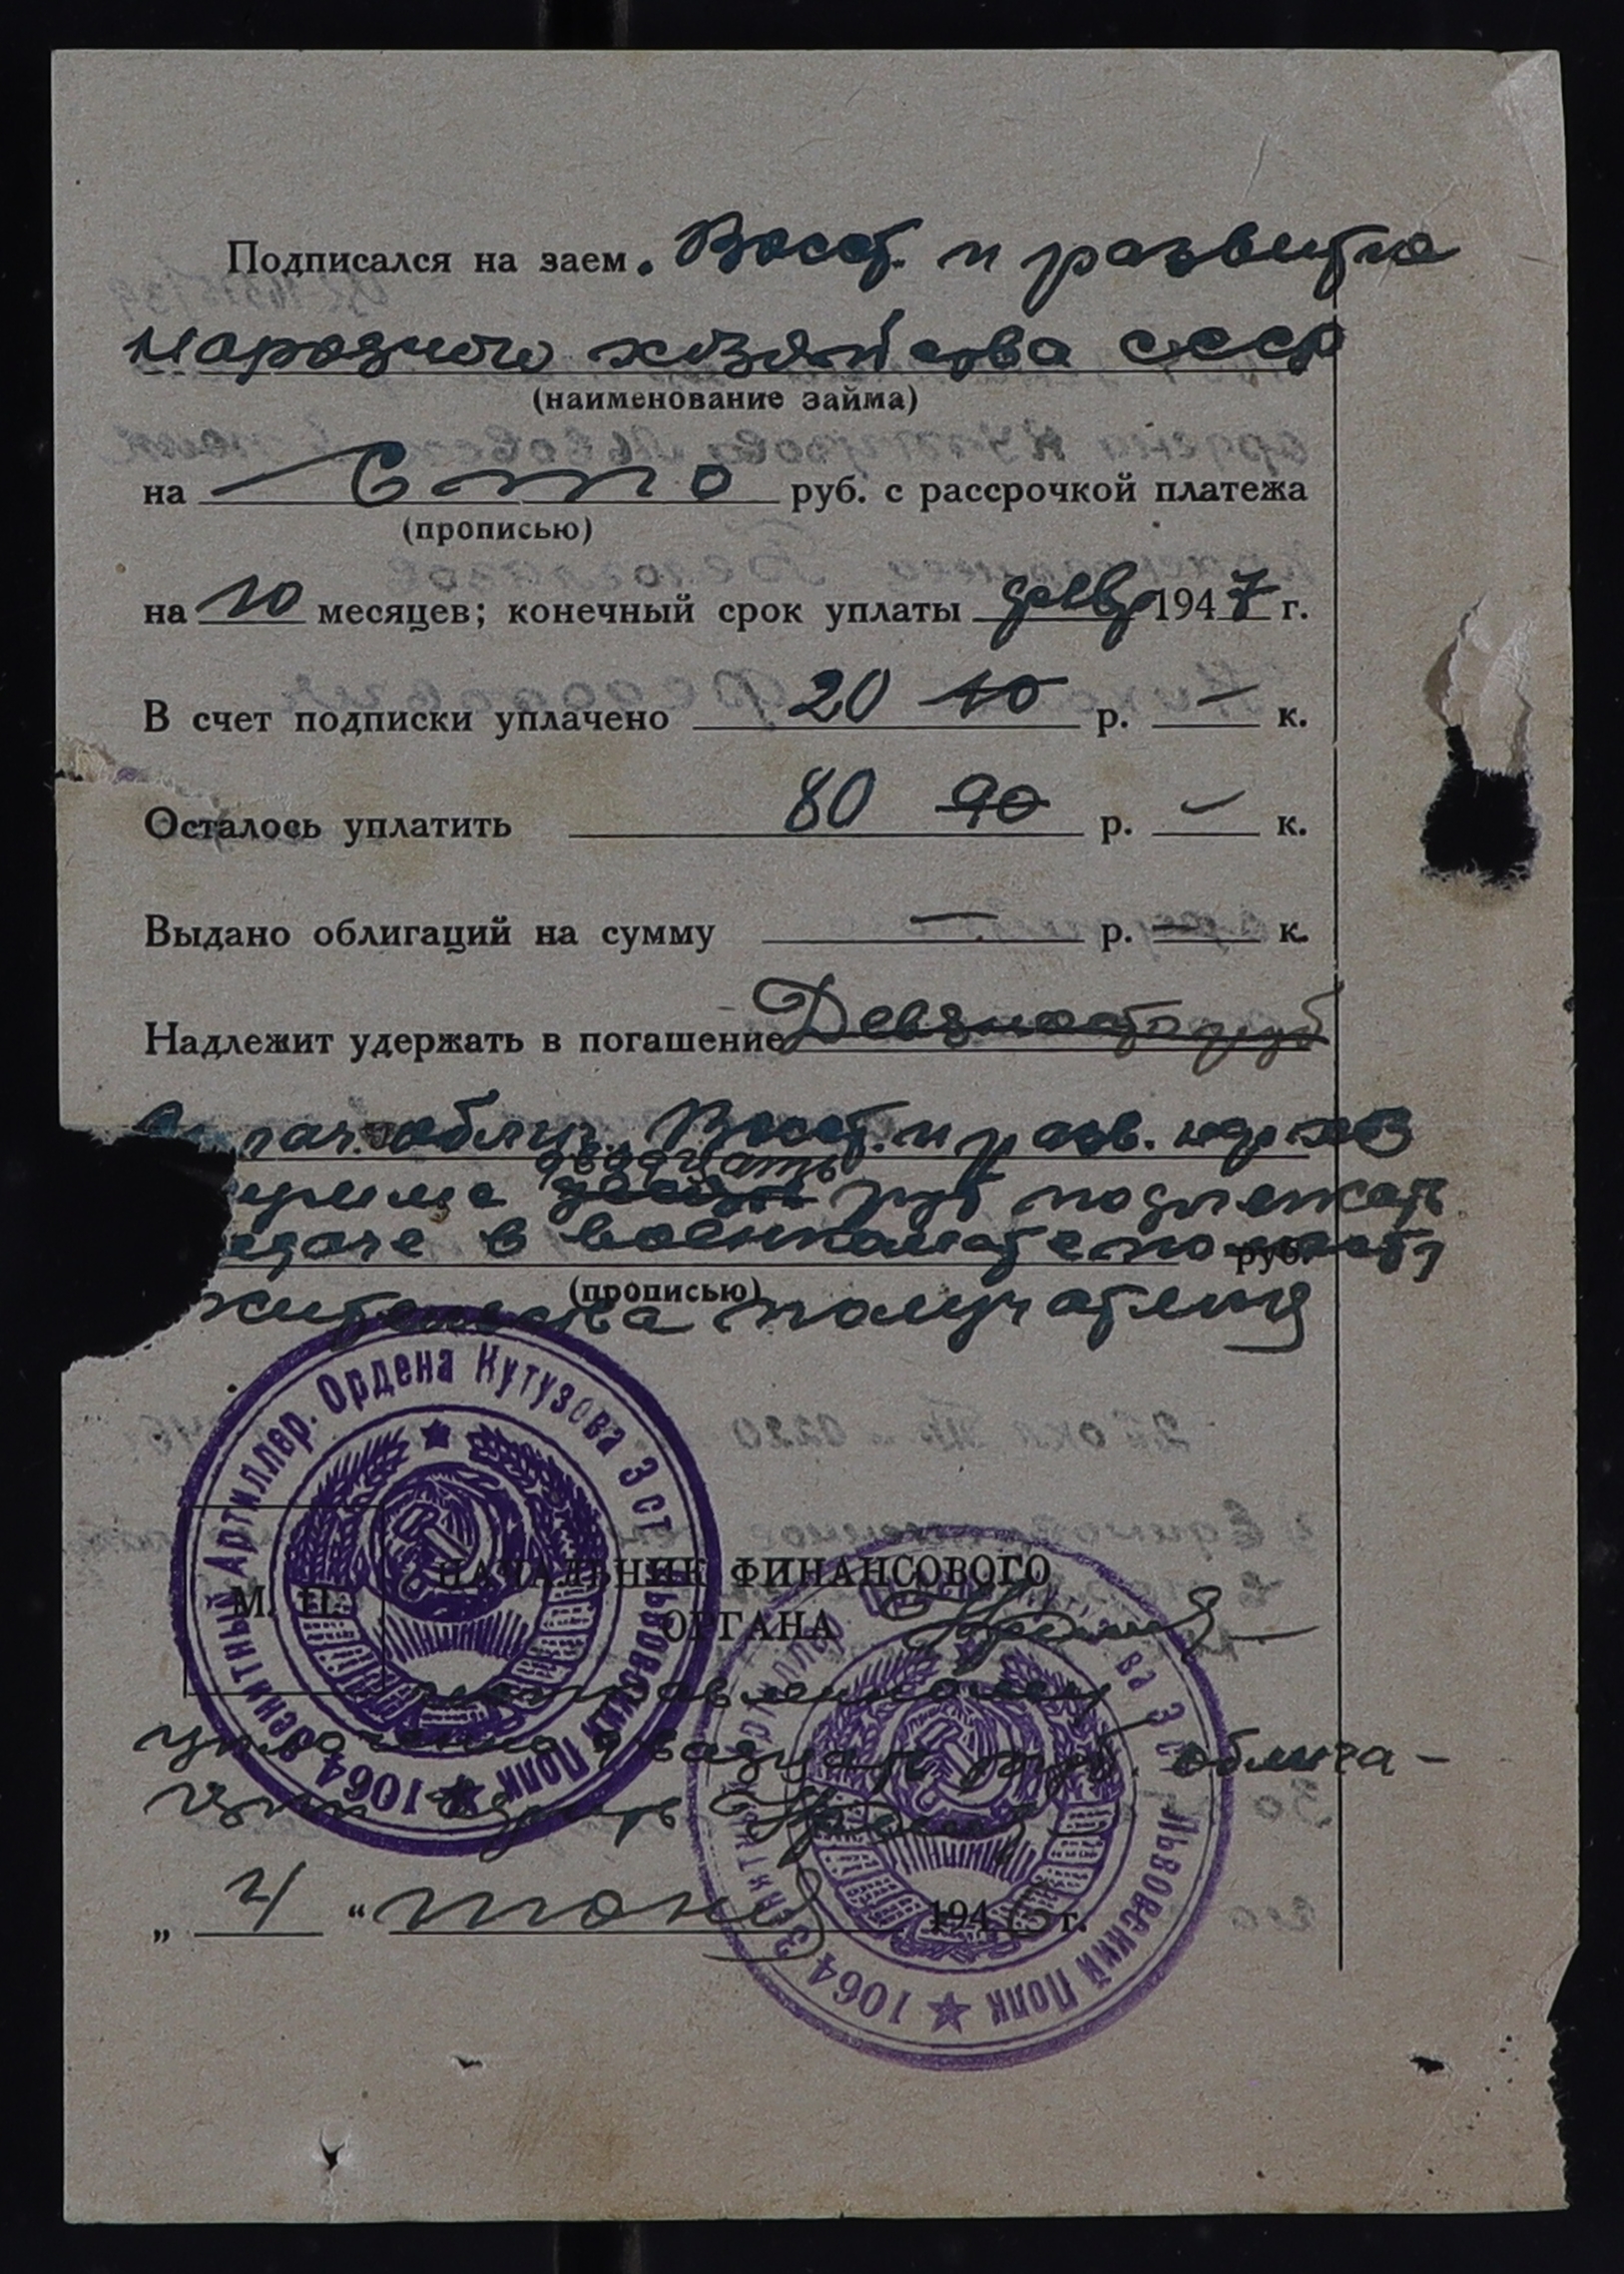 Подписался на заем. Восст. и развития
народного хозяйства СССР
(наименование займа)
на Сто руб. с рассрочкой платежа
(прописью)
на 10 месяцев; конечный срок уплаты февр 1947 г.
В счет подписки уплачено 20 10 р. — к.
Осталось уплатить 80 90 р. — к.
Выдано облигаций на сумму — р. — к.
Надлежит удержать в погашение Девяносто руб
облиг. Восст. и разв. нар хоз
двадцать
руб подлежат
в военкомате по месту руб.
(прописью)
жительства получателя
Зенитный Артиллер. Ордена Кутузова 3 ст. Львовский Полк ★ 1064
М. П.
НАЧАЛЬНИК ФИНАНСОВОГО
ОРГАНА
исправленному
уплачено двадцать руб. облига-
ции
„ 4 “ июня 1946 г.
1064 ★ Львовский Полк